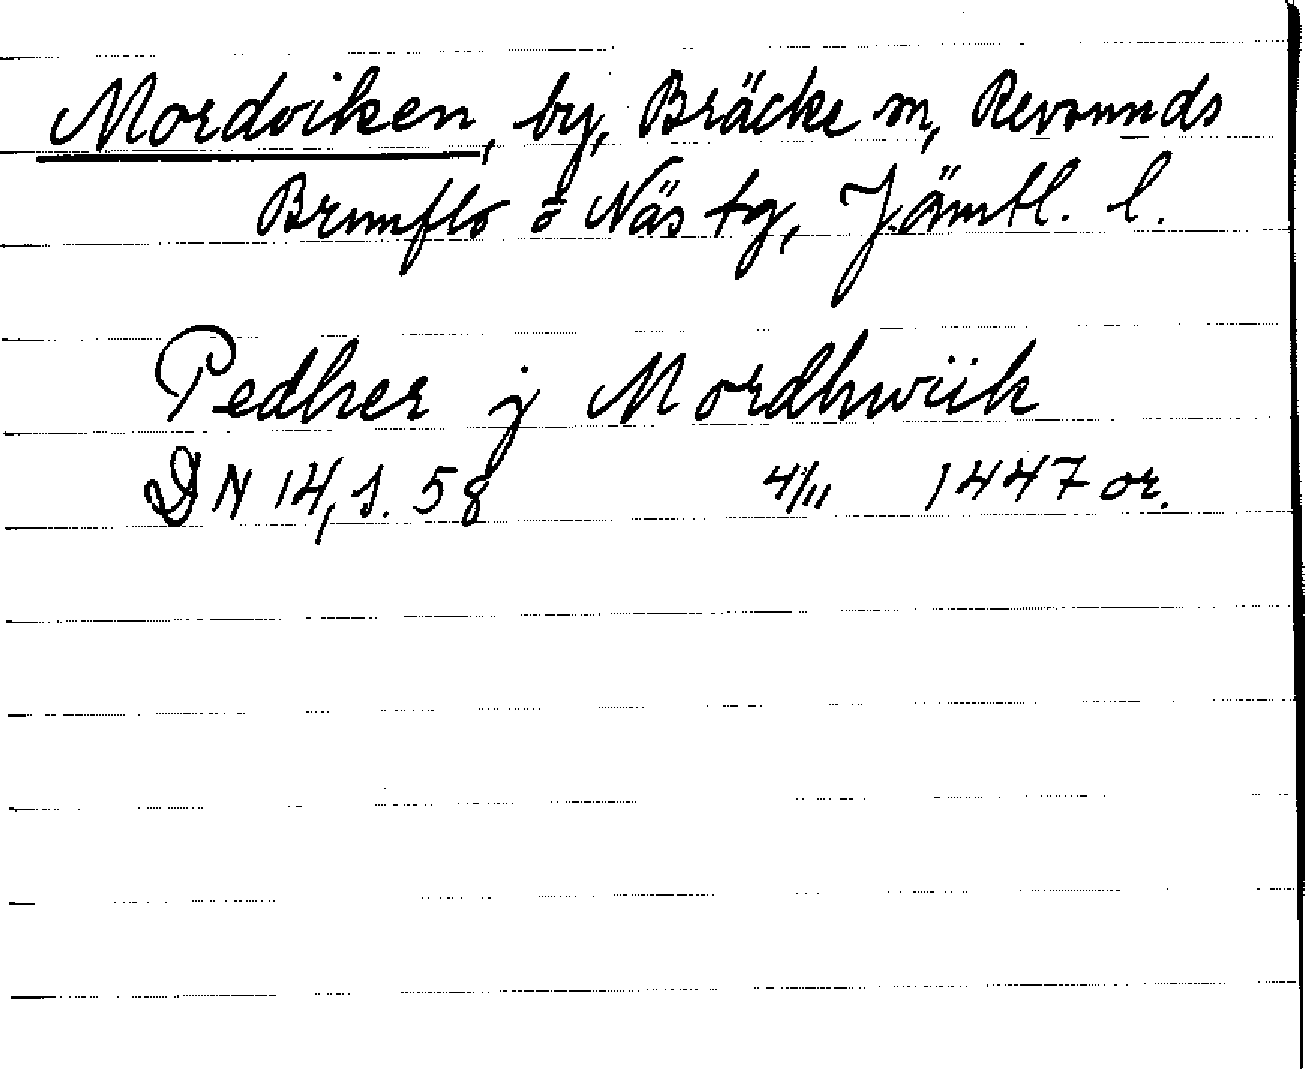 Mordviken, by, Bräcke sn, Revsunds
Brunflo o Näs tg, Jämtl. l.
Pedher j Mordhwiik
DN 14, s. 58 4/11 1447 or.